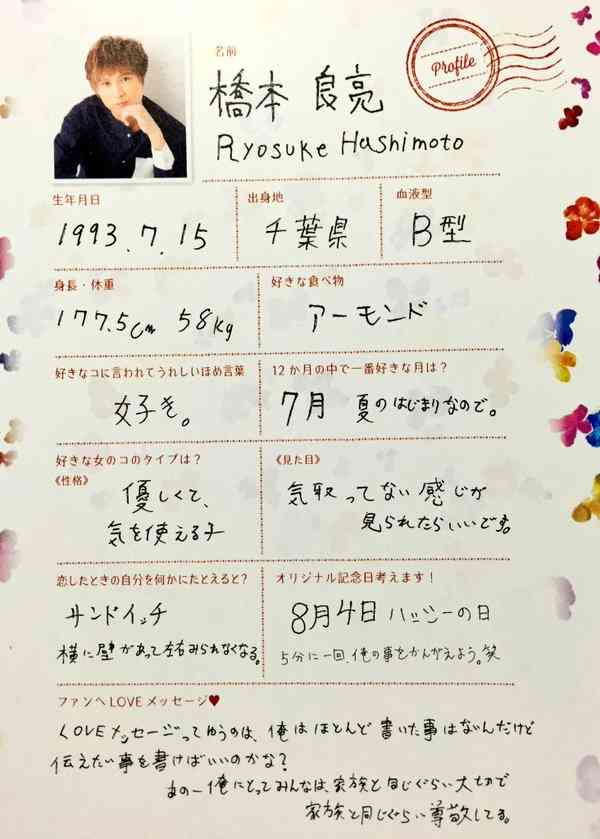 名前
Profile
橋本 良亮
Ryosuke Hashimoto
生年月日
1993.7.15
出身地
千葉県
血液型
B型
身長・体重
177.5cm 58kg
好きな食べ物
アーモンド
好きなコに言われてうれしいほめ言葉
好き。
12か月の中で一番好きな月は?
7月 夏のはじまりなので。
好きな女のコのタイプは?
《性格》
優しくて、
気を使える子
《見た目》
気取ってない感じが
見られたらいいです。
恋したときの自分を何かにたとえると?
サンドイッチ
横に壁があって左右みられなくなる。
オリジナル記念日考えます!
8月4日 ハッシーの日
5分に一回、俺の事をかんがえよう。笑
ファンへLOVEメッセージ♥
LOVEメッセージってゆうのは、俺はほとんど書いた事はないんだけど
伝えたい事を書けばいいのかな?
あのー俺にとってみんなは、家族と同じぐらい大切で
家族と同じぐらい尊敬してる。